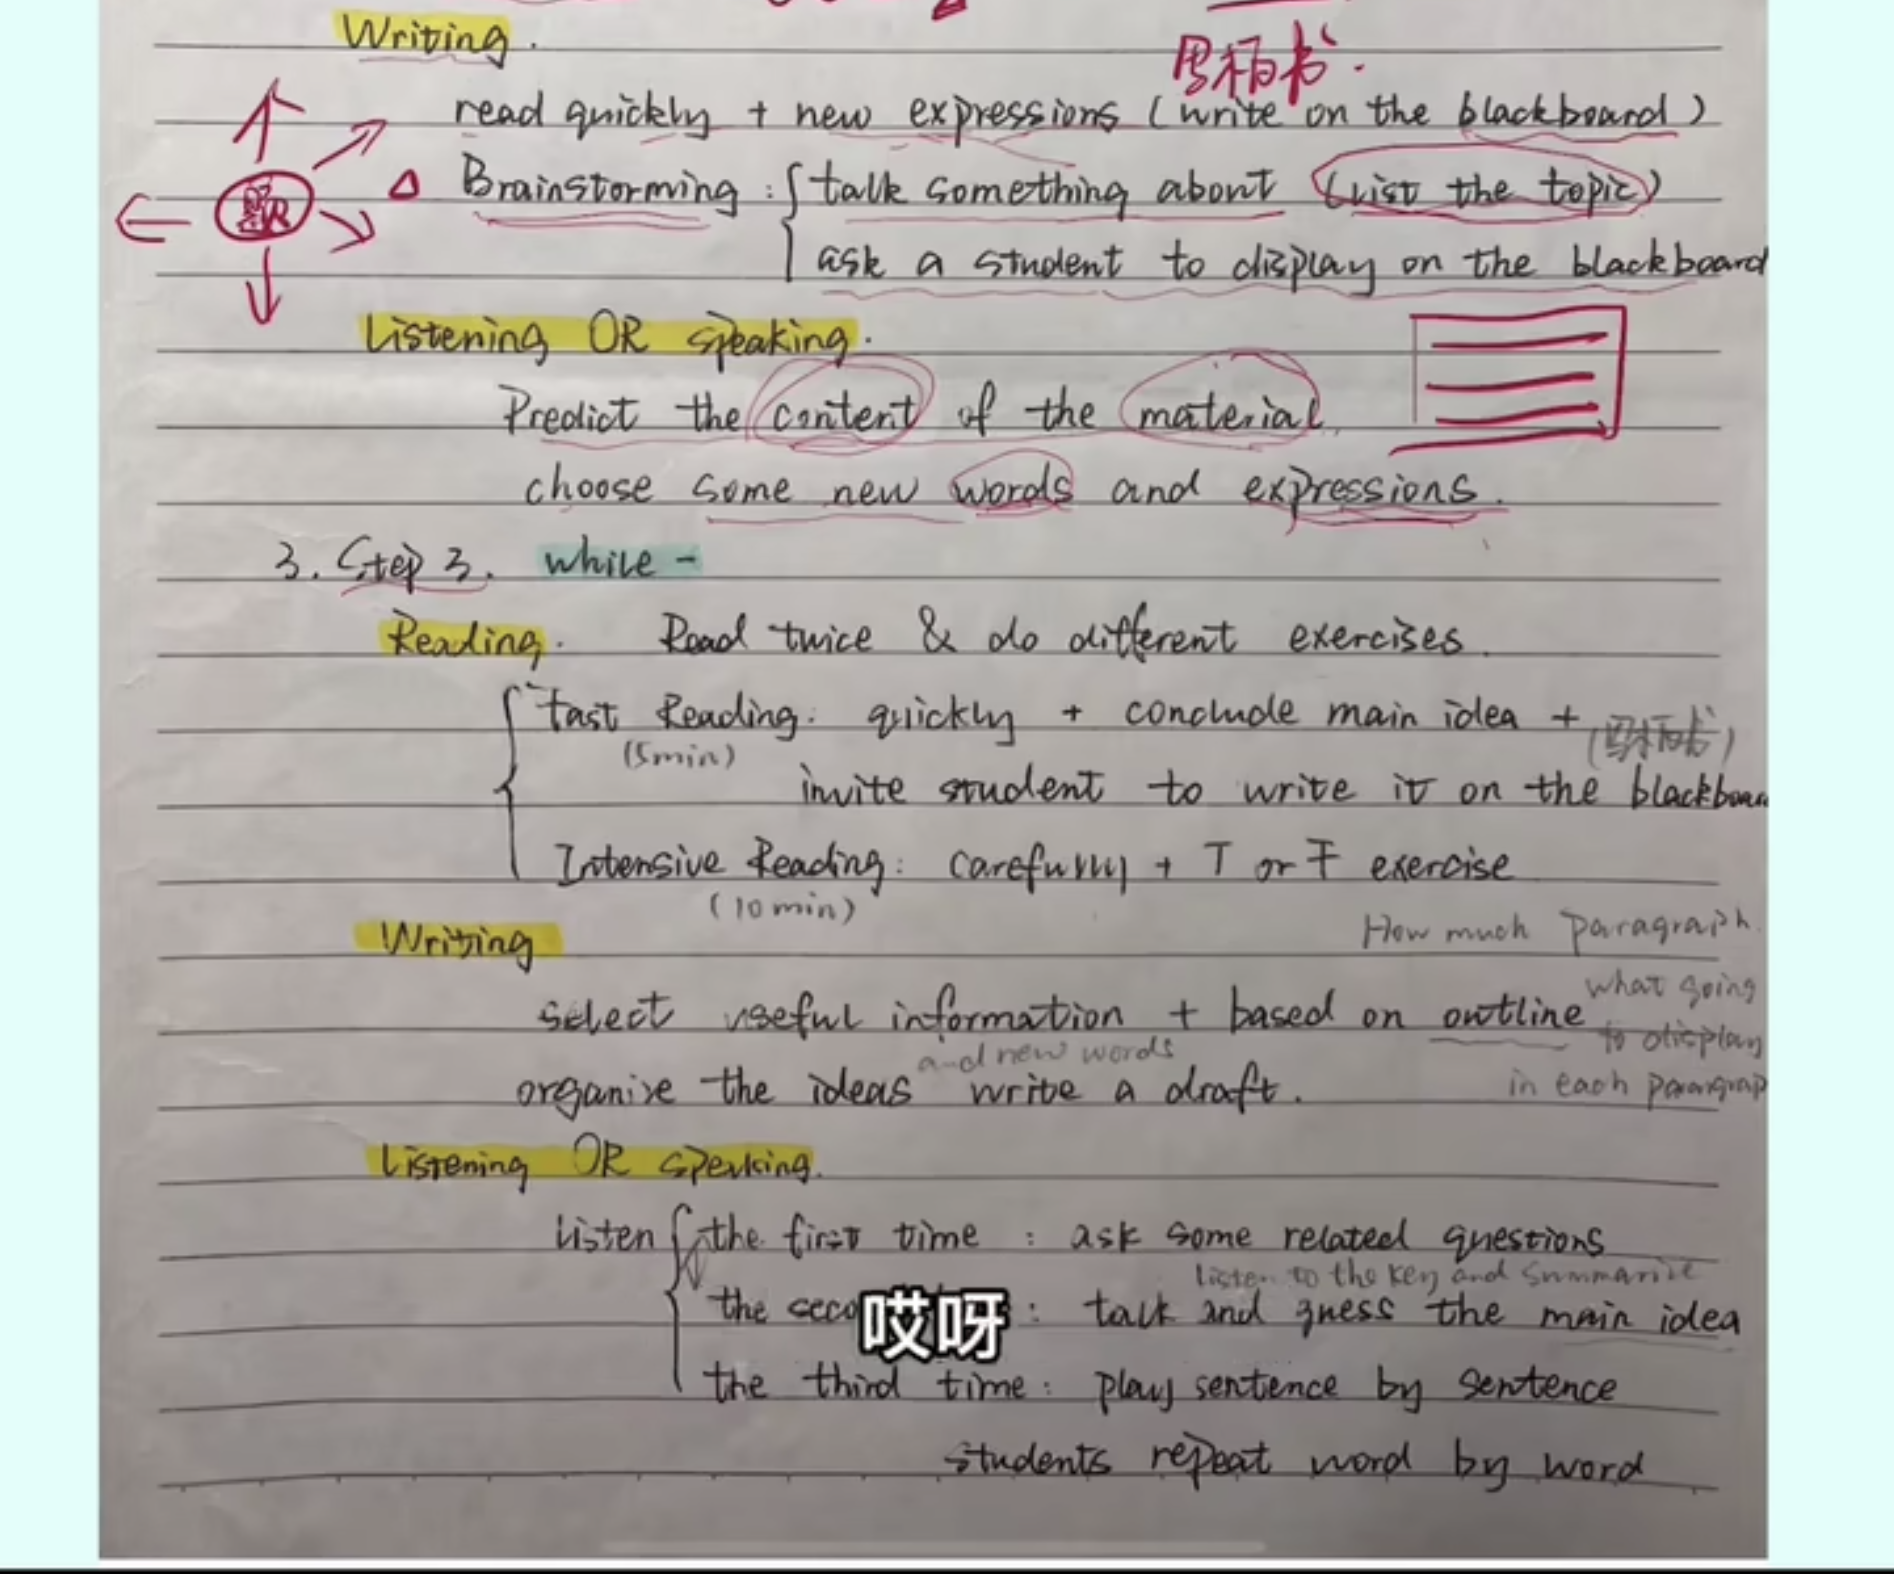 Writing.
写板书.
read quickly + new expressions (write on the blackboard)
题
Δ Brainstorming: { talk something about (list the topic)
ask a student to display on the blackboard
Listening OR speaking.
Predict the content of the material.
choose some new words and expressions.
3. Step 3. while -
Reading. Read twice & do different exercises.
Fast Reading: quickly + conclude main idea +
(写板书)
(5min)
invite student to write it on the blackboar
Intensive Reading: carefully + T or F exercise
(10min)
Writing
How much paragraph.
what going
select useful information + based on outline
to display
and new words
organise the ideas write a draft.
in each paragrap
Listening OR speaking.
Listen { the first time : ask some related questions
listen to the key and summarize
the seco : talk and guess the main idea
哎呀
the third time : play sentence by sentence
students repeat word by word